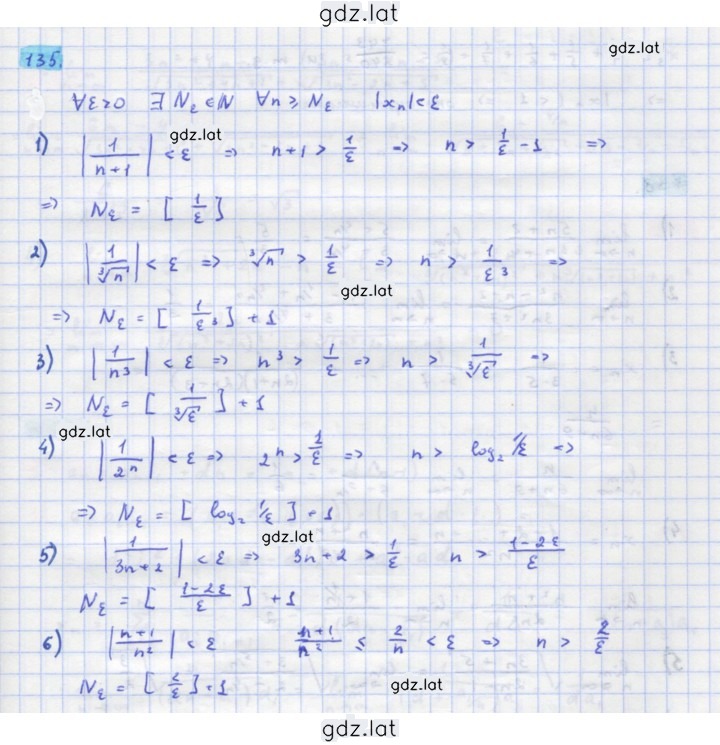 gdz.lat
gdz.lat
135.
∀ε>0 ∃ N_ε ∈ N ∀n ⩾ N_ε |x_n|<ε
gdz.lat
1) |1/(n+1)| < ε => n+1 > 1/ε => n > 1/ε - 1 =>
=> N_ε = [1/ε]
2) |1/∛n| < ε => ∛n > 1/ε => n > 1/ε³ =>
gdz.lat
=> N_ε = [1/ε³] + 1
3) |1/n³| < ε => n³ > 1/ε => n > 1/∛ε =>
=> N_ε = [1/∛ε] + 1
gdz.lat
4) |1/2ⁿ| < ε => 2ⁿ > 1/ε => n > log₂ 1/ε =>
=> N_ε = [log₂ 1/ε] + 1
gdz.lat
5) |1/(3n+2)| < ε => 3n+2 > 1/ε n > (1-2ε)/ε
N_ε = [(1-2ε)/ε] + 1
6) |(n+1)/n²| < ε (n+1)/n² ≤ 2/n < ε => n > 2/ε
N_ε = [2/ε] + 1
gdz.lat
gdz.lat